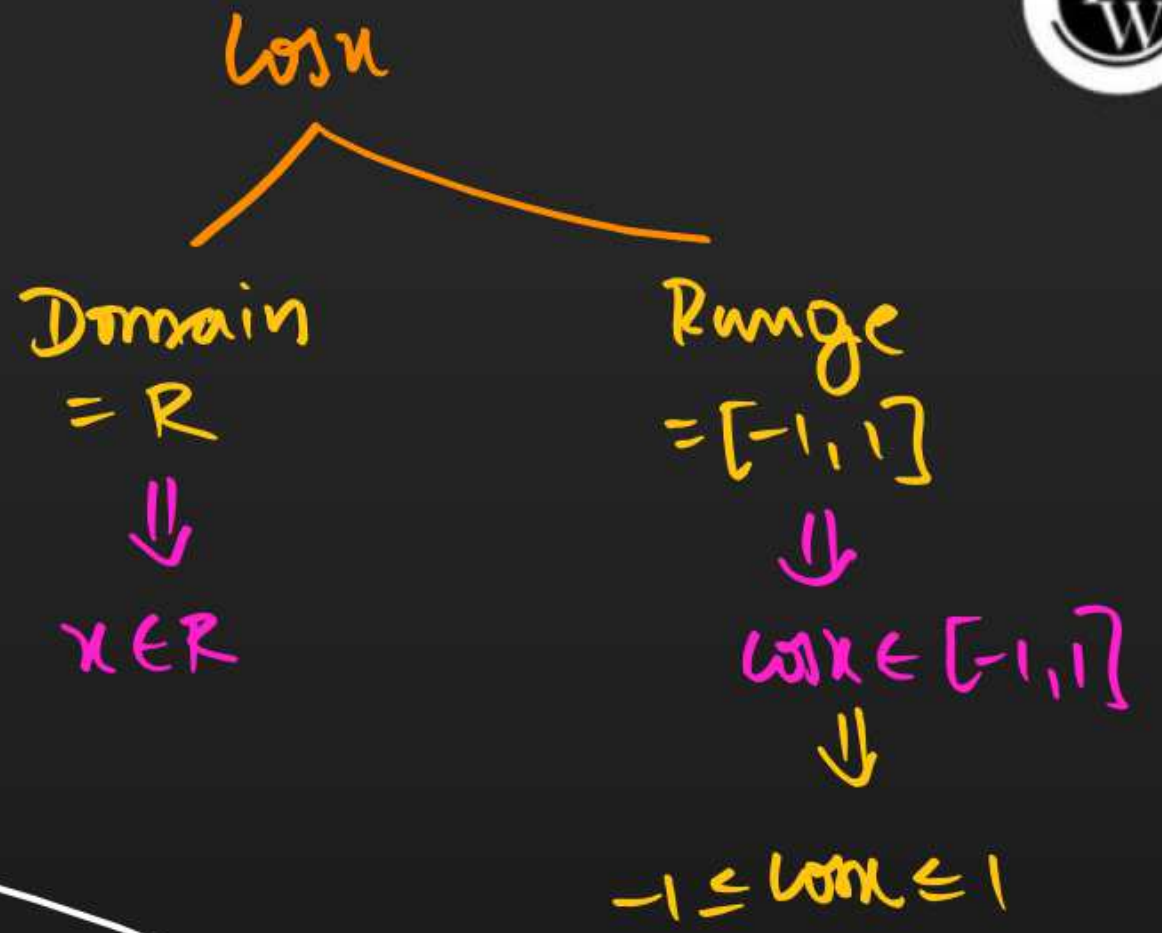 W
cosx
Domain
= R
⇓
x ∈ R
Range
= [-1, 1]
⇓
cosx ∈ [-1, 1]
⇓
-1 ≤ cosx ≤ 1